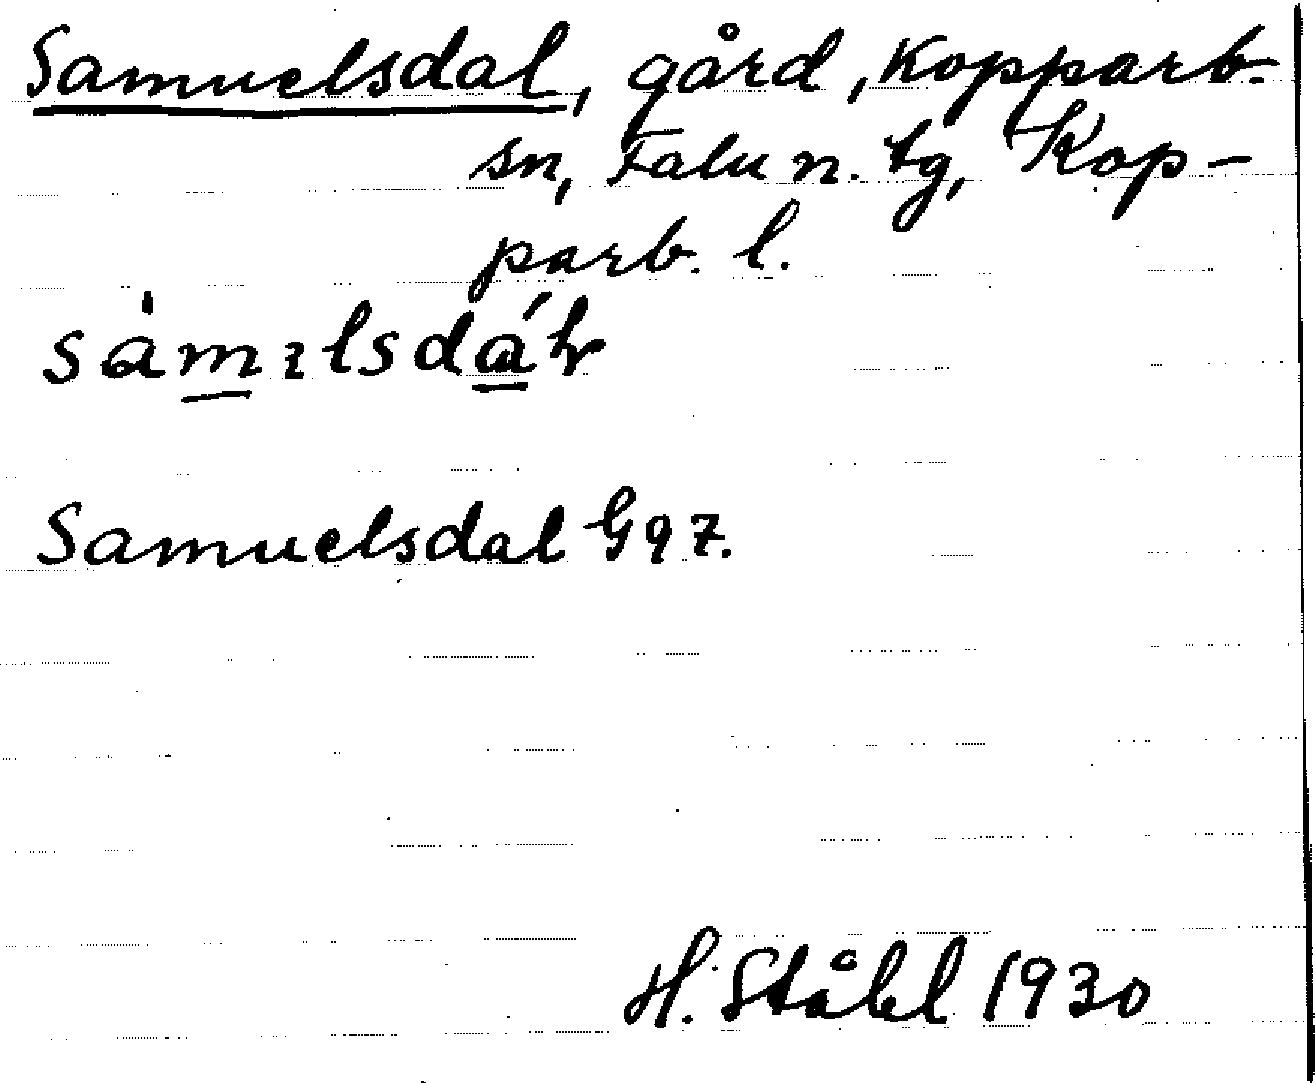 Samuelsdal, gård, Kopparb.
sn, Falu n. tg, Kop-
parb. l.
Samuelsdal G97.
H. Ståhl 1930